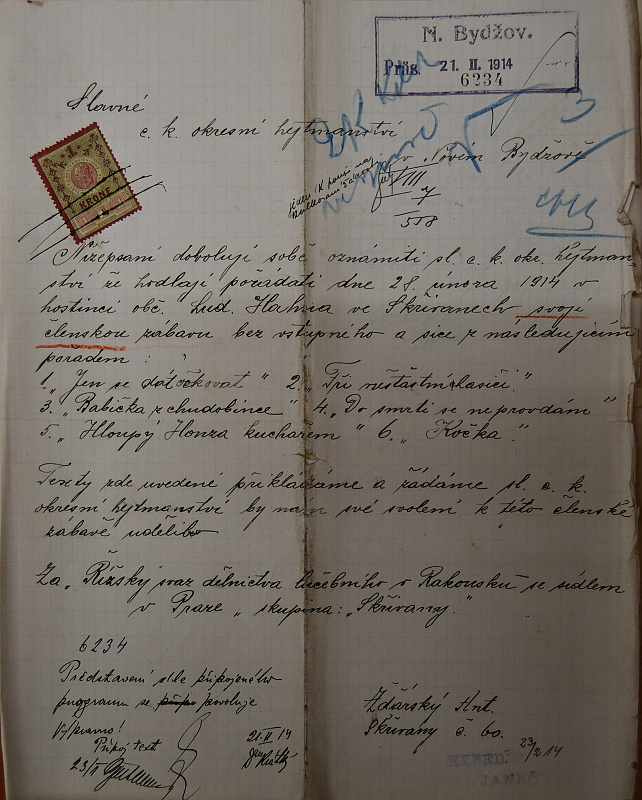 N. Bydžov.
Präs. 21. II. 1914
6234
Slavné
c. k. okresní hejtmanství
v Novém Bydžově
3
VIII
7
558
KRONE
Nížepsaní dovolují sobě oznámiti sl. c. k. okr. hejtman-
ství že hodlají pořádati dne 28. února 1914 v
hostinci obč. Lud. Hahna ve Skřivanech svoji
členskou zábavu bez vstupného a sice z následujícím
pořadem:
1. „Jen se dočkat“ 2. „Tři nešťastní hasiči.“
3. „Babička z chudobince“ 4. „Do smrti se neprovdám“
5. „Hloupý Honza kuchařem“ 6. „Kočka“.
Texty zde uvedené přikládáme a žádáme sl. c. k.
okresní hejtmanství by nám své svolení k této členské
zábavě udělilo
Za „Říšský svaz dělnictva lučebního v Rakousku se sídlem
v Praze „skupina: „Skřivany“.
6234
Představení dle připojeného
programu se povoluje
Připoj text
23/II
21.II.14
Žďárský Ant.
Skřivany č. 60.
EXPED. 23/2 14